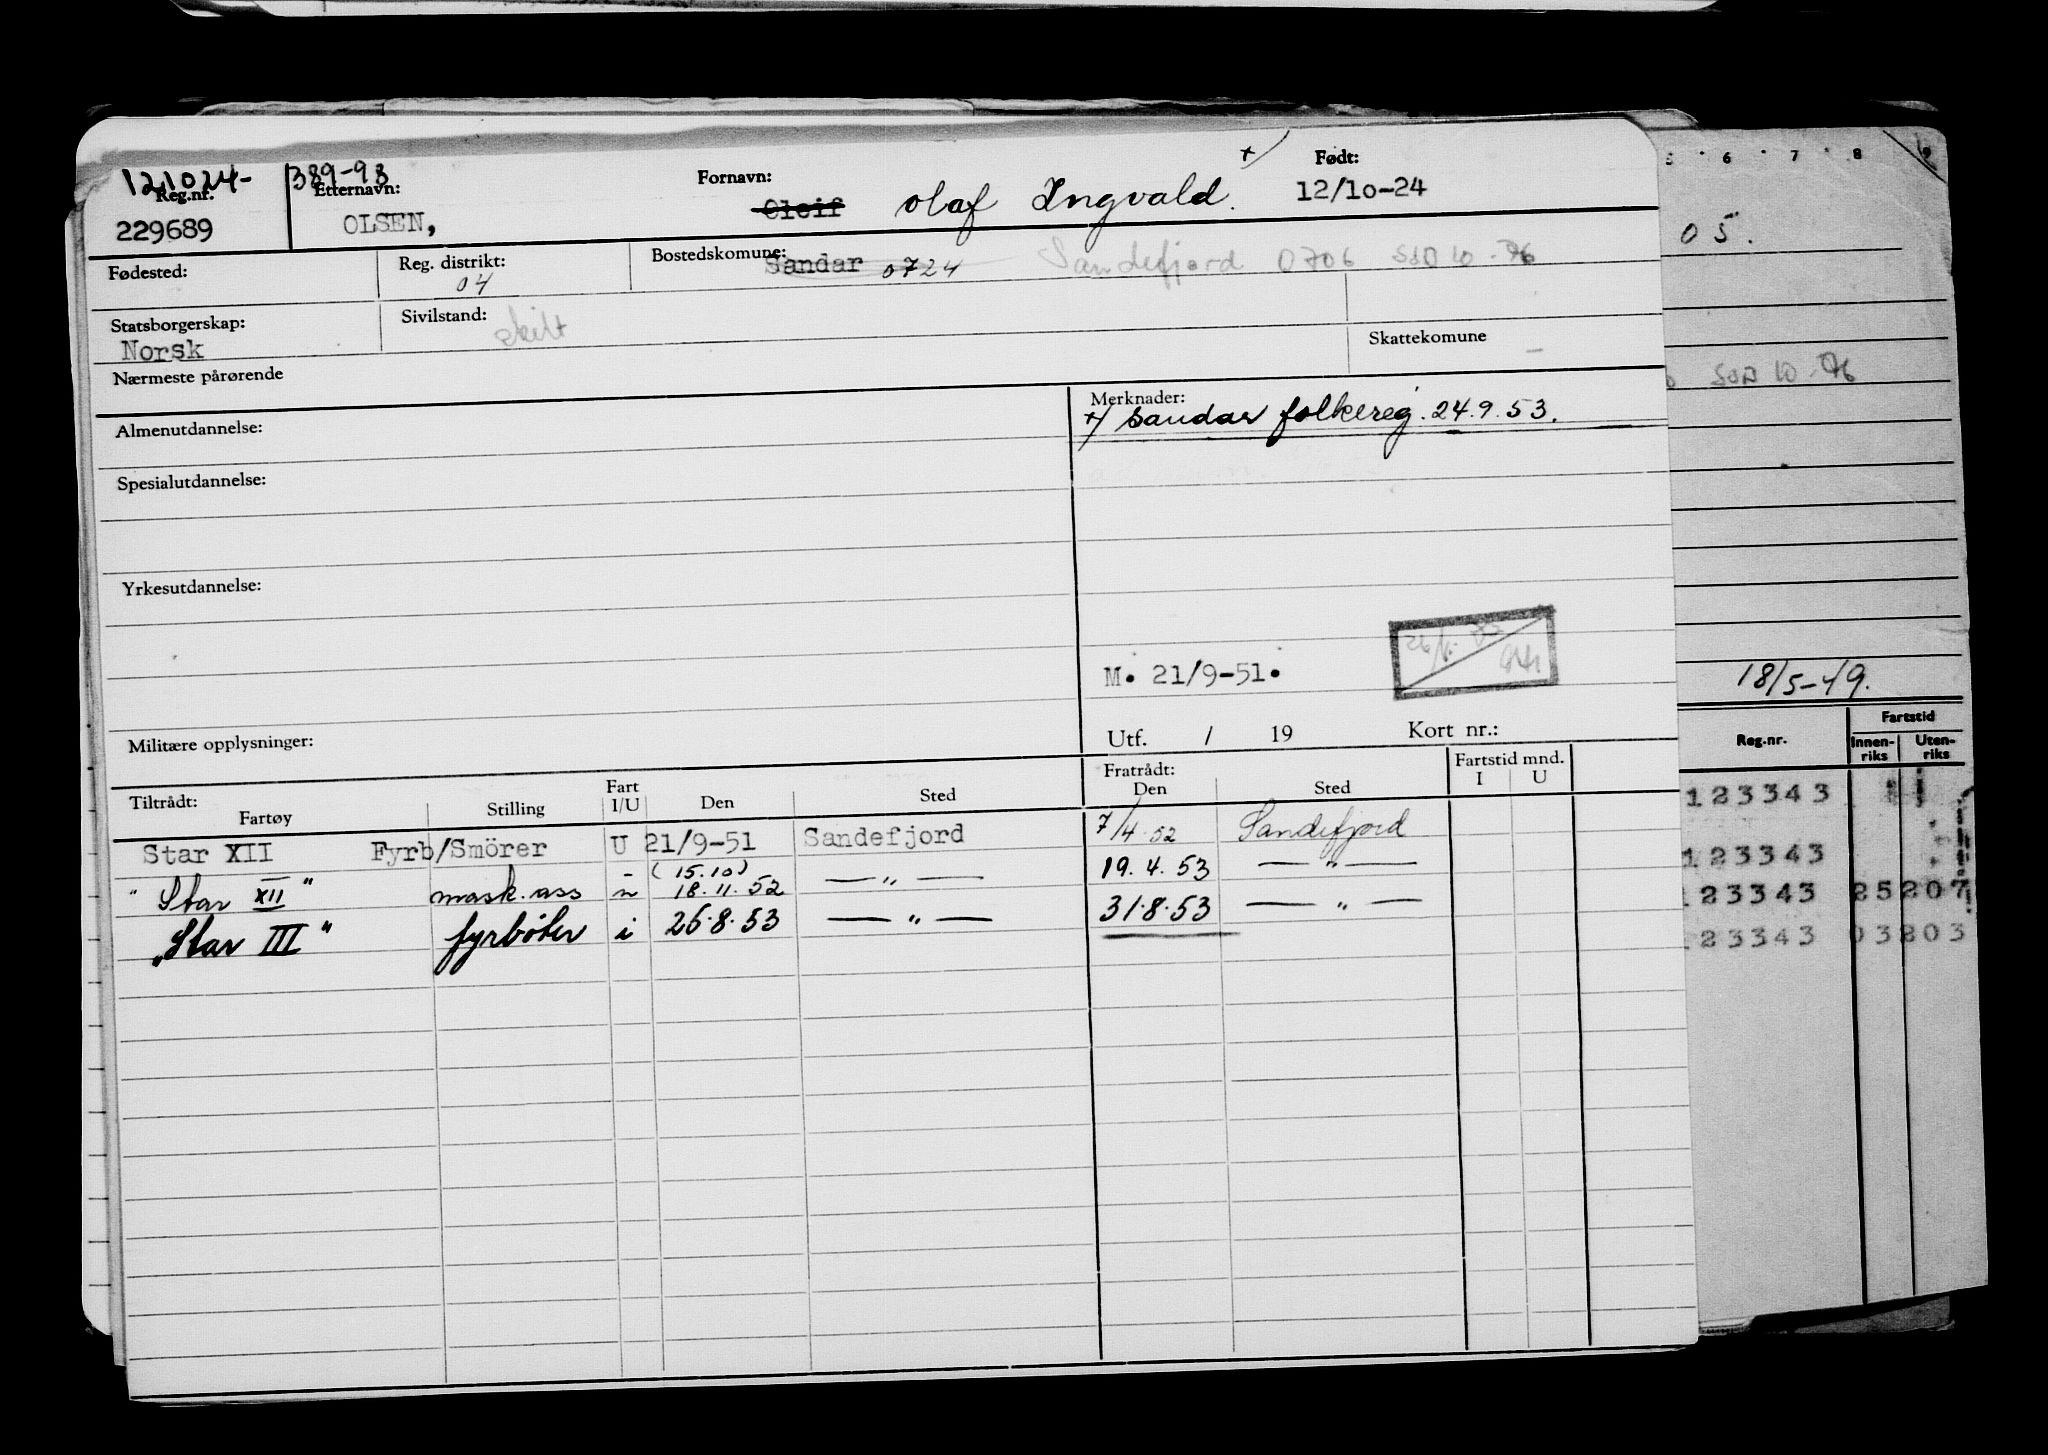 121024- 389-93
Reg.nr. Etternavn: Fornavn: +/ Født:
229689 OLSEN, Oleif Olaf Ingvald. 12/10-24
Fødested: Reg. distrikt: 04 Bostedskomune: Sandar 0724 Sandefjord 0706 SSD 10-76
Statsborgerskap: Norsk Sivilstand: skilt
Skattekomune -
Nærmeste pårørende
Almenutdannelse: Merknader:
+/ Sandar folkereg. 24.9.53.
Spesialutdannelse:
Yrkesutdannelse:
M. 21/9-51.
Militære opplysninger: Utf. / 19 Kort nr.:
Tiltrådt: Fart Fratrådt: Fartstid mnd.
Fartøy Stilling I/U Den Sted Den Sted I U
Star XII Fyrb/Smörer U 21/9-51 Sandefjord 7/4-52 Sandefjord
" Star XII " mask. ass - " - (15.10) 18.11.52 — " — 19.4.53 — " —
"Star III" fyrbøter i 26.8.53 — " — 31.8.53 — " —
5 6 7 8 9
05.
6 SSD 10-76
18/5-49.
Reg.nr. Fartstid
Innen-riks Uten-riks
123343
123343
123343 25 207
123343 03 203